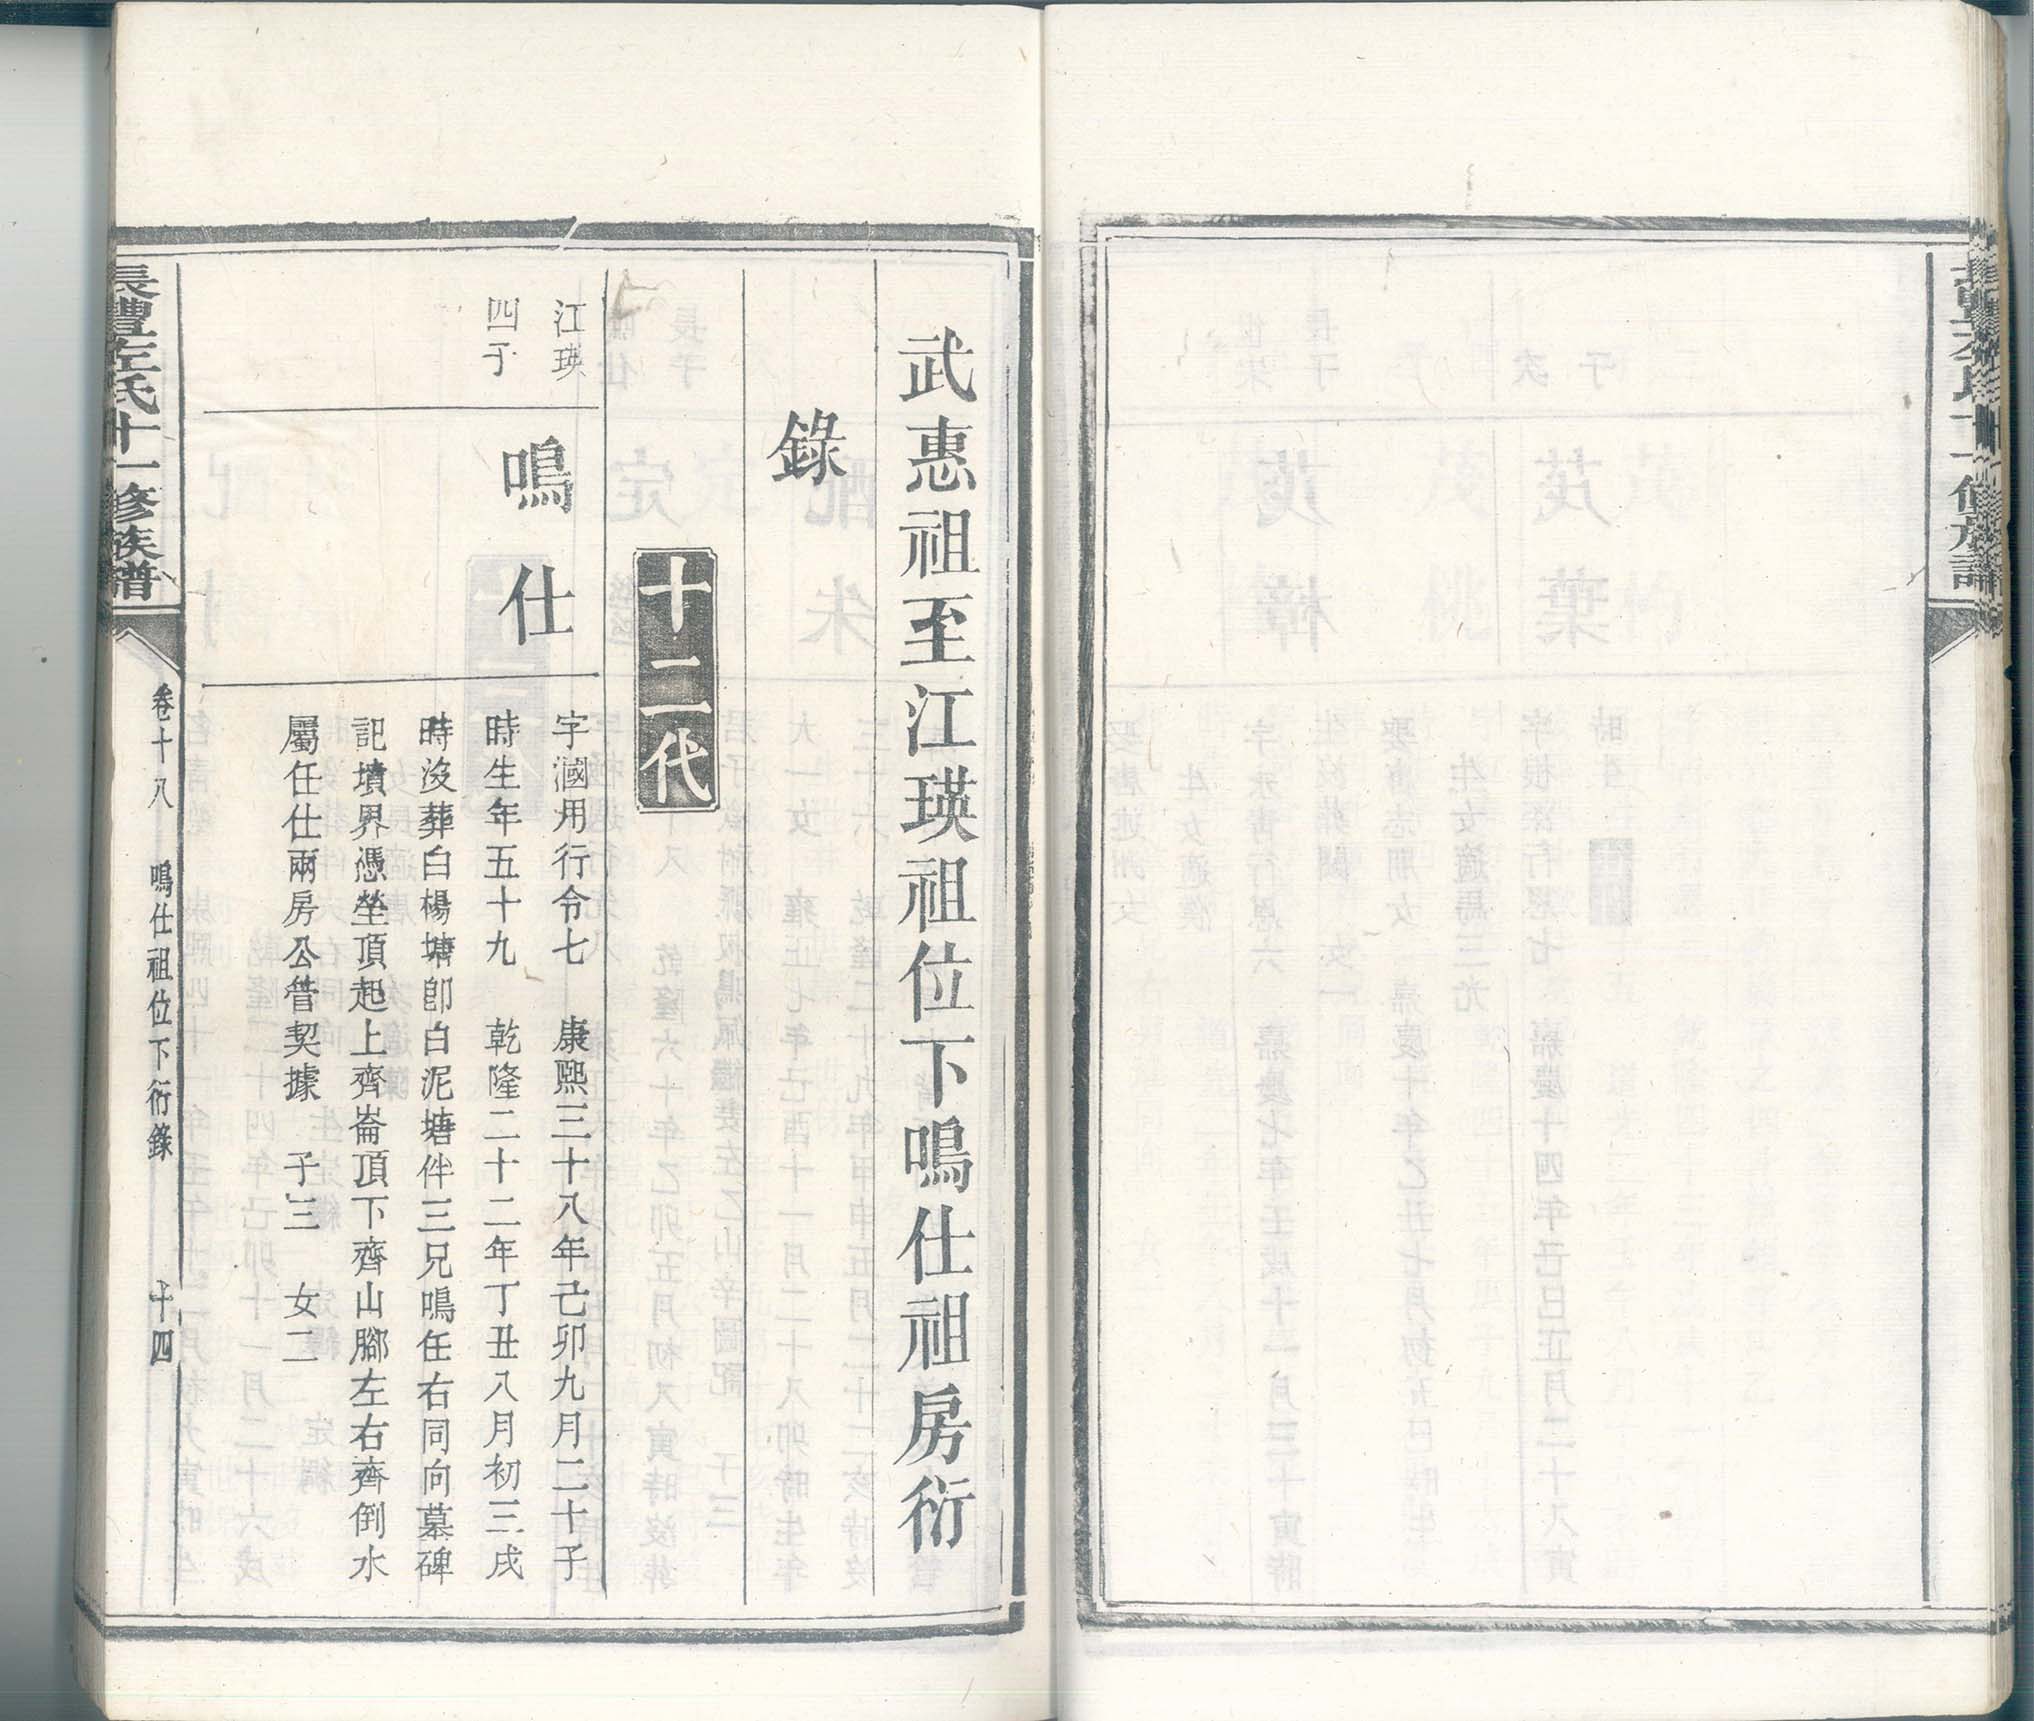 武惠祖至江瑛祖位下鳴仕祖房衍
錄
十二代
江瑛
四子
鳴仕
字漍用行令七 康熙三十八年己卯九月二十子
時生年五十九 乾隆二十二年丁丑八月初三戌
時沒葬白楊塘卽白泥塘伴三兄鳴任右同向墓碑
記墳界憑塋頂起上齊崙頂下齊山腳左右齊倒水
屬任仕兩房公管契據 子三 女二
長豐左氏十一修族譜
卷十八 鳴仕祖位下衍錄 十四